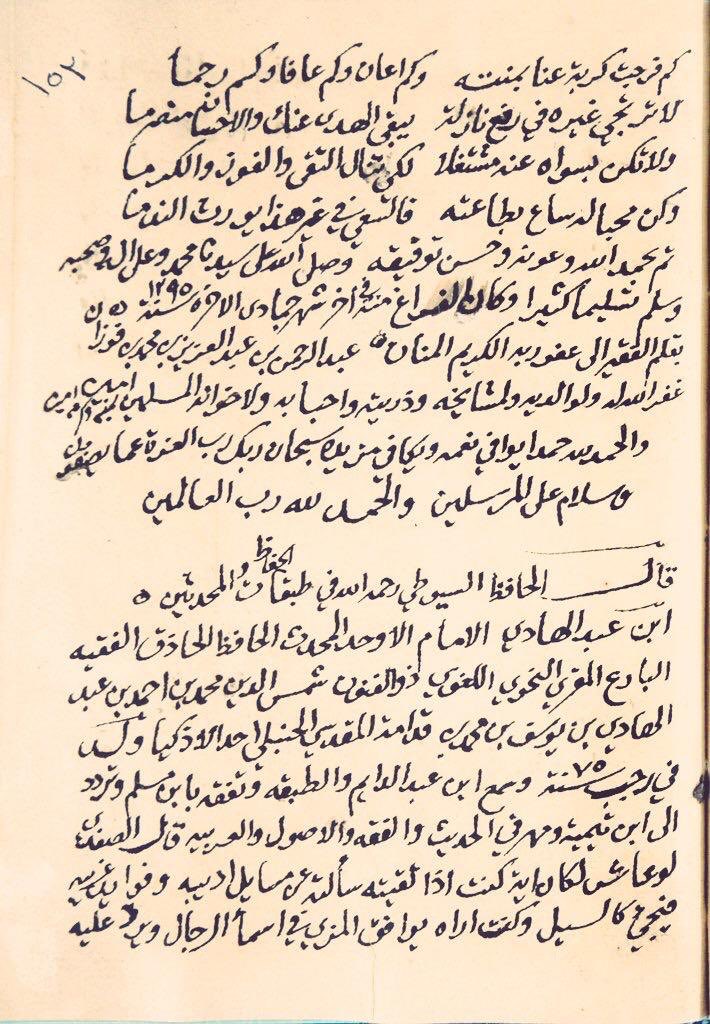 ١٥٣
كم فرجت كربة عنا بمنته وكم اعان وكم عافا وكم رحما
لا ترتجي غيره في رفع نازلة يبقى الهدى عنك والاحسان منصرما
ولا تكن بسواه عنه مشتغلا لكي تنال التقى والفوز والكرما
وكن محبا له ساع بطاعته فالسعي في غير هذا يورث الندما
تم بحمد الله وعونه وحسن توفيقه وصلى الله على سيدنا محمد وعلى اله وصحبه
وسلم تسليما كثيرا وكان الفراغ منه في اخر شهر جمادى الاخرة سنة ١٢٩٥
بقلم الفقير الى عفو ربه الكريم المنان عبد الرحمن بن عبد العزيز بن محمد بن فوزان
غفر الله له ولوالديه ولمشايخه وذريته واحبابه ولاخوانه المسلمين امين
والحمد لله حمدا يوافي نعمه ويكافي مزيده سبحان ربك رب العزة عما يصفون
وسلام على المرسلين والحمد لله رب العالمين
قال الحافظ السيوطي رحمه الله في طبقات الحفاظ والمحدثين
ابن عبد الهادي الامام الاوحد المحدث الحافظ الحاذق الفقيه
البارع المقري النحوي اللغوي ذو الفنون شمس الدين محمد بن احمد بن عبد
الهادي بن يوسف بن محمد بن قدامة المقدسي الحنبلي احد الاذكيا ولد
في رجب سنة ٧٥ وسمع ابن عبد الدايم والطبقه وتفقه بابن مسلم وتردد
الى ابن تيمية ومهر في الحديث والفقه والاصول والعربيه قال الصفدي
لو عاش لكان اية كنت اذا لقيته سألته عن مسايل ادبيه وفوايد عربيه
فينحدر كالسيل وكنت اراه يوافق المزي في اسما الرجال ويرد عليه